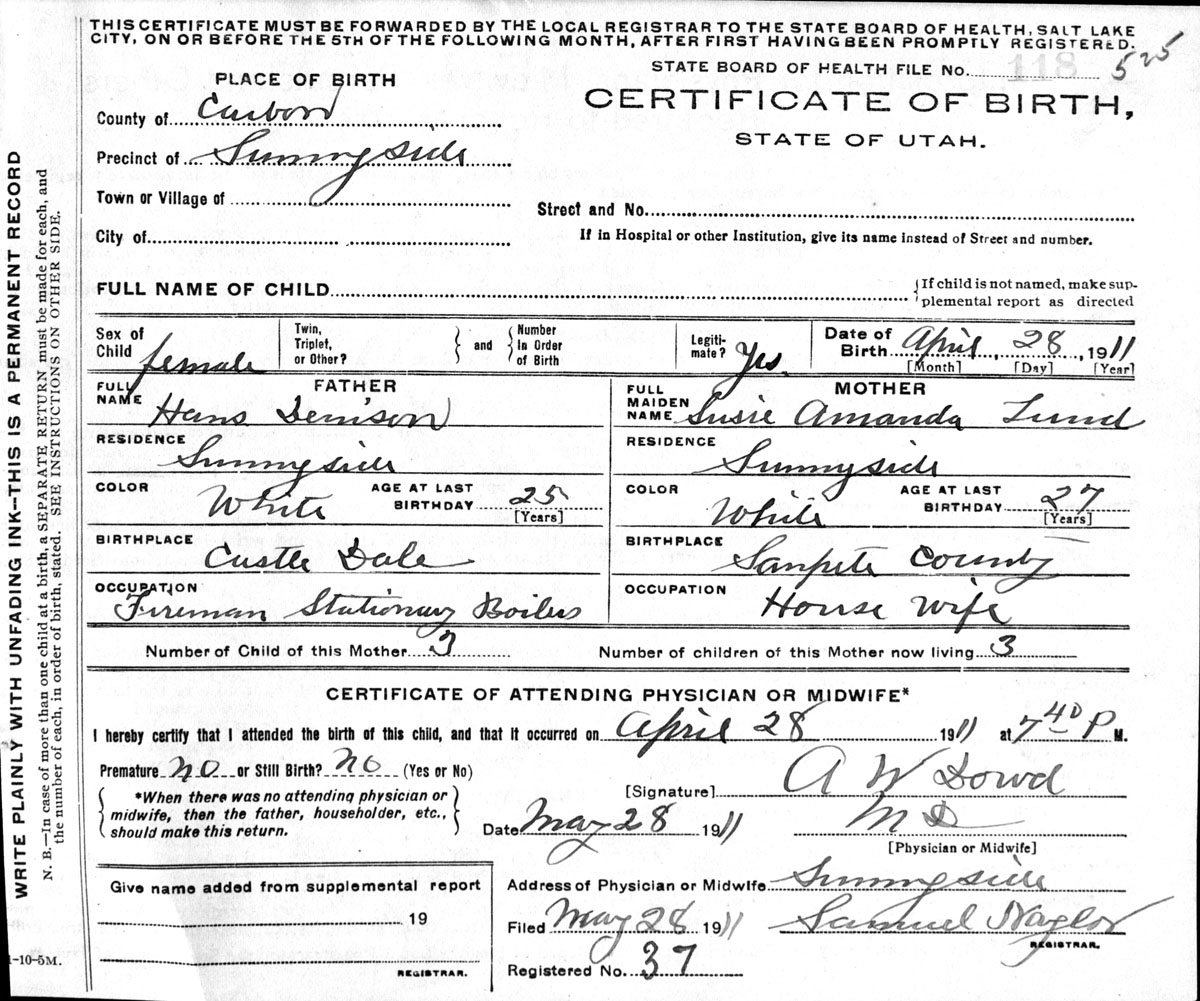 THIS CERTIFICATE MUST BE FORWARDED BY THE LOCAL REGISTRAR TO THE STATE BOARD OF HEALTH, SALT LAKE
CITY, ON OR BEFORE THE 5TH OF THE FOLLOWING MONTH, AFTER FIRST HAVING BEEN PROMPTLY REGISTERED.
STATE BOARD OF HEALTH FILE No. 118 525
PLACE OF BIRTH
CERTIFICATE OF BIRTH,
STATE OF UTAH.
County of Carbon
Precinct of Sunnyside
Town or Village of
Street and No.
City of
If in Hospital or other Institution, give its name instead of Street and number.
FULL NAME OF CHILD
{If child is not named, make sup-
plemental report as directed
Sex of Child female
Twin, Triplet, or Other?
} and {
Number In Order of Birth
Legiti-mate? Yes.
Date of Birth April, 28, 1911
[Month] [Day] [Year]
FATHER
FULL NAME Hans Denison
RESIDENCE Sunnyside
COLOR White AGE AT LAST BIRTHDAY 25
[Years]
BIRTHPLACE Castle Dale
OCCUPATION Fireman Stationary Boilers
MOTHER
FULL MAIDEN NAME Susie Amanda Lund
RESIDENCE Sunnyside
COLOR White AGE AT LAST BIRTHDAY 27
[Years]
BIRTHPLACE Sanpete County
OCCUPATION House Wife
Number of Child of this Mother 3 Number of children of this Mother now living 3
CERTIFICATE OF ATTENDING PHYSICIAN OR MIDWIFE*
I hereby certify that I attended the birth of this child, and that it occurred on April 28 1911 at 7 40 P M.
Premature no or Still Birth? no (Yes or No)
{ *When there was no attending physician or
midwife, then the father, householder, etc.,
should make this return. }
[Signature] A W Dowd
Date May 28 1911 M D
[Physician or Midwife]
Give name added from supplemental report
19
REGISTRAR.
Address of Physician or Midwife Sunnyside
Filed May 28 1911 Samuel Naylor
REGISTRAR.
Registered No. 37
1-10-5M.
WRITE PLAINLY WITH UNFADING INK--THIS IS A PERMANENT RECORD
N. B.—In case of more than one child at a birth, a SEPARATE RETURN must be made for each, and
the number of each, in order of birth, stated. SEE INSTRUCTIONS ON OTHER SIDE.